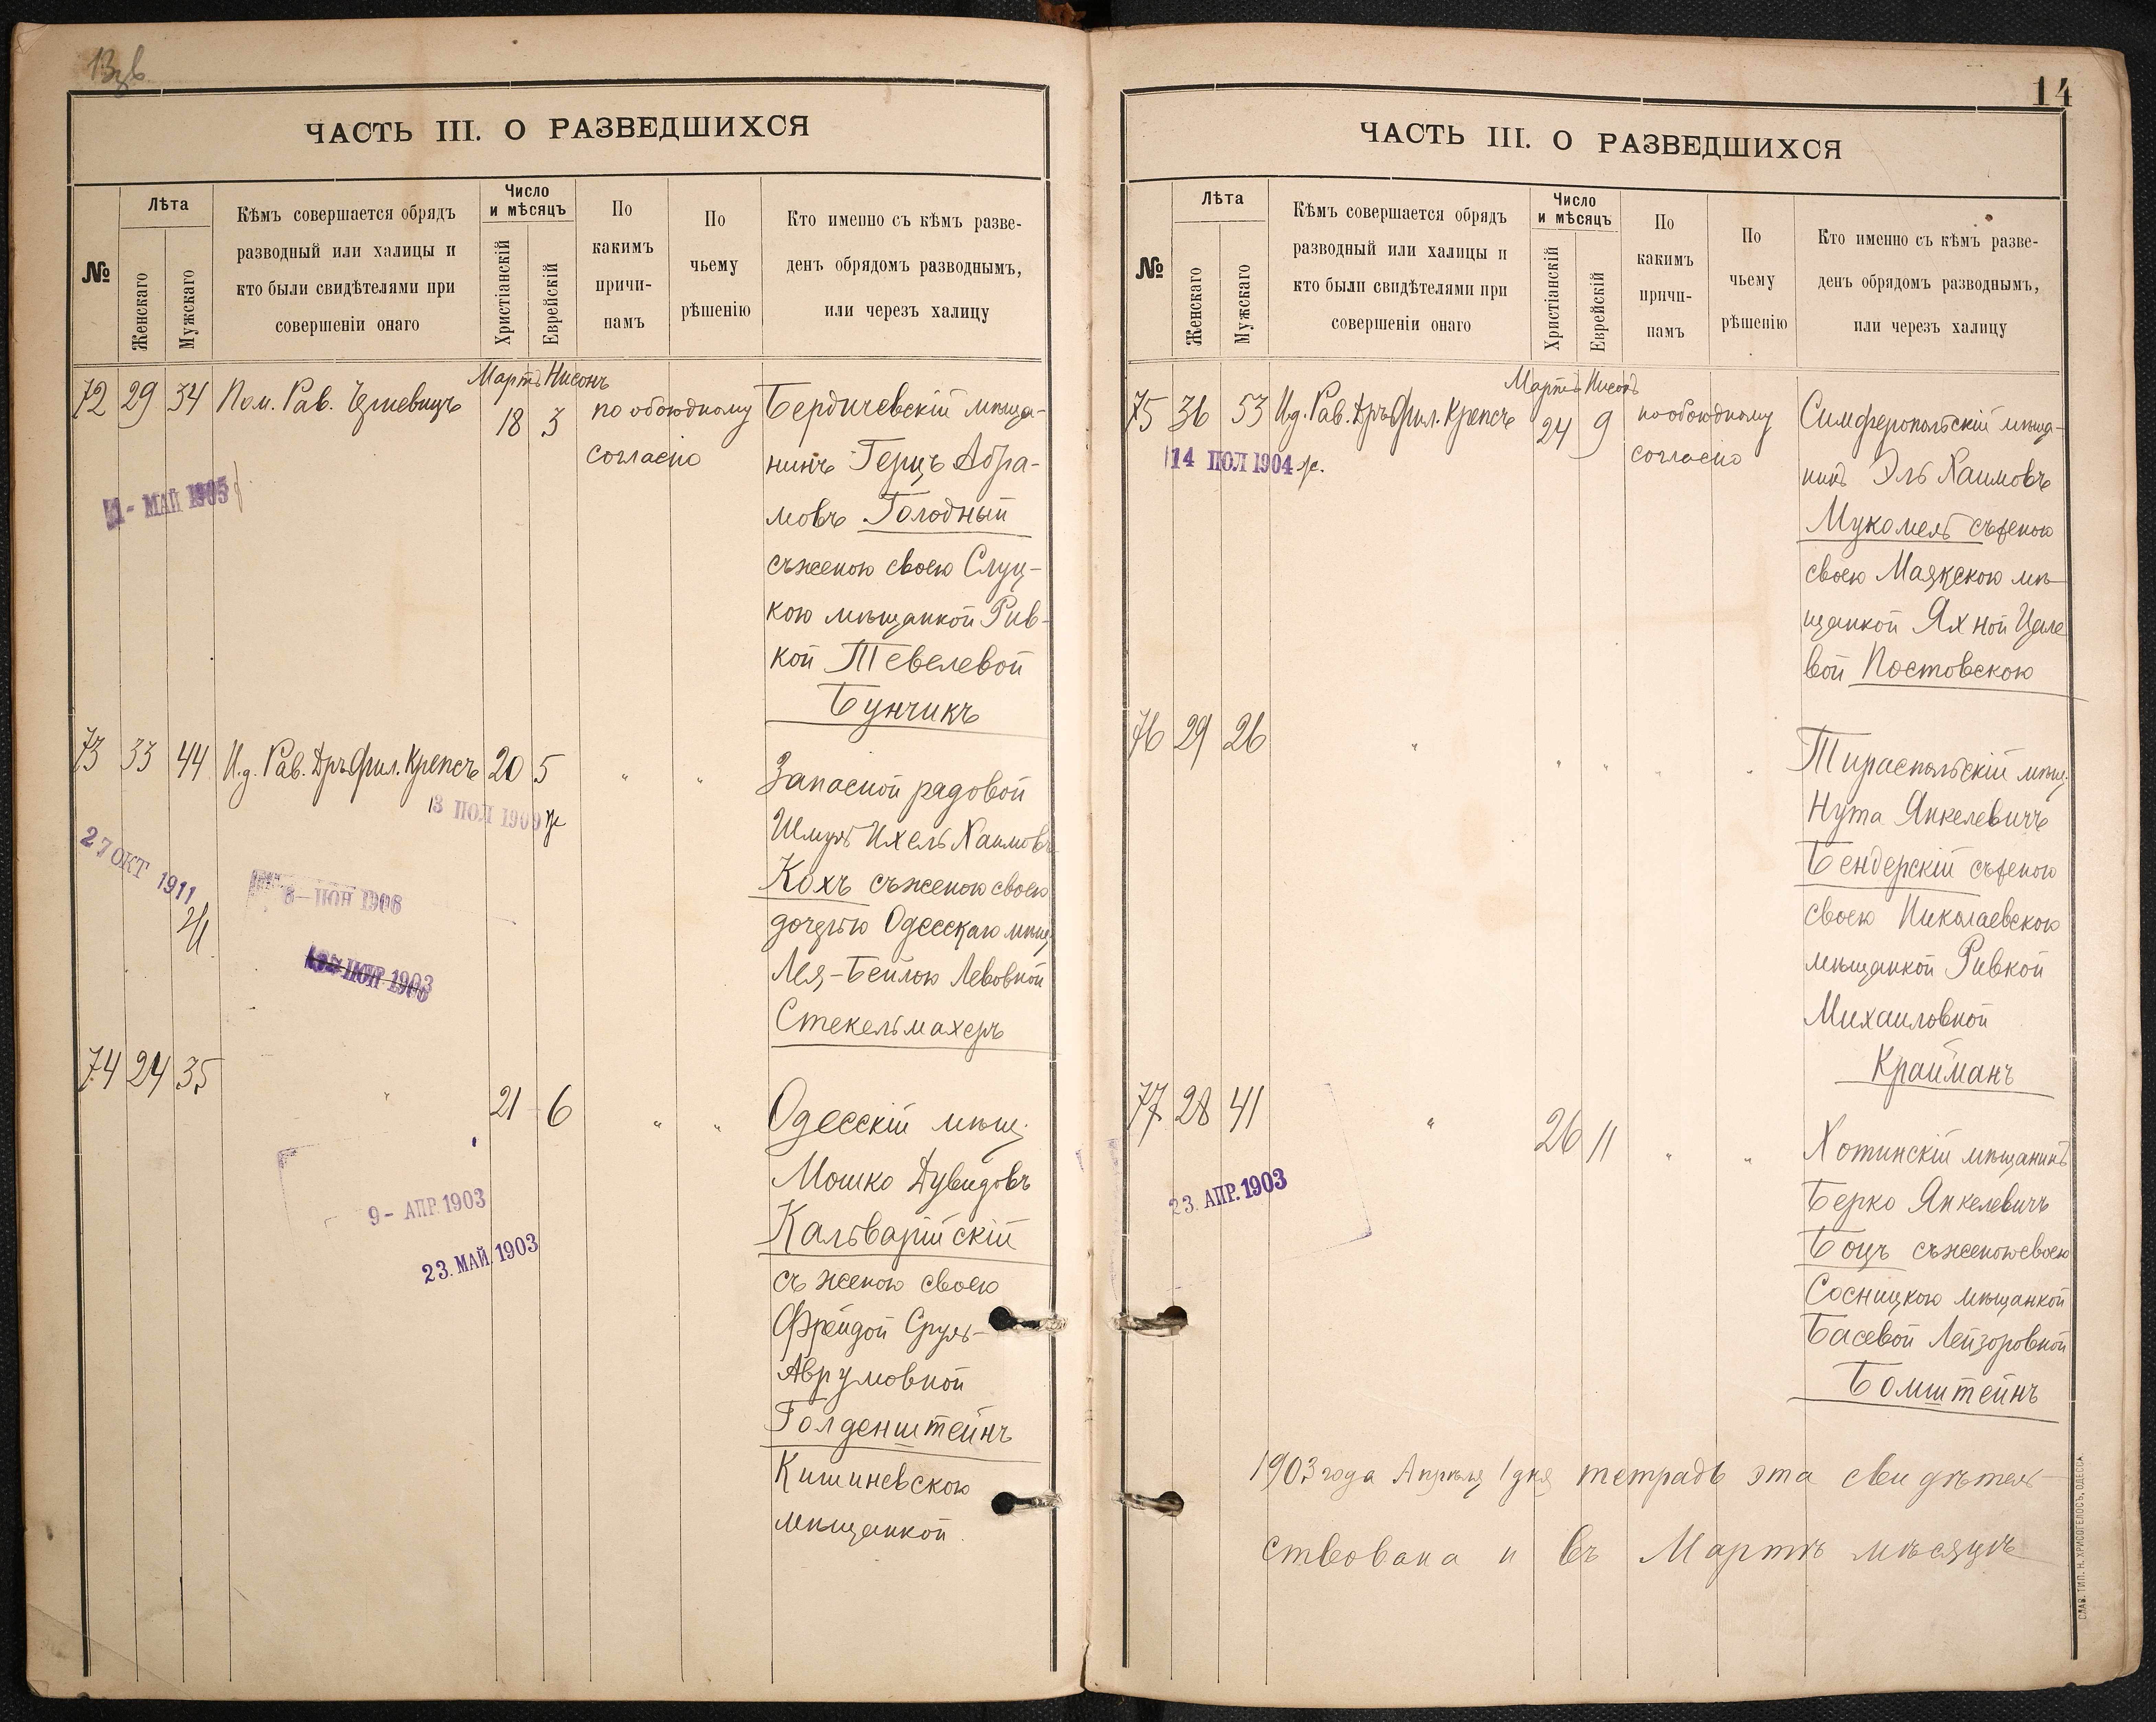 13 об
ЧАСТЬ III. О РАЗВЕДШИХСЯ
№
Лѣта
Женскаго
Мужскаго
Кѣмъ совершается обрядъ
разводный или халицы и
кто были свидѣтелями при
совершеніи онаго
Число
и мѣсяцъ
Христіанскій
Еврейскій
По
какимъ
причи-
намъ
По
чьему
рѣшенію
Кто именно съ кѣмъ разве-
денъ обрядомъ разводнымъ,
или черезъ халицу
Мартъ Нисонъ
72 29 34 Пом. Рав. 18 3 по обоюдному
согласію
Бердичевскій мѣща-
нинъ Герцъ Абра-
мовъ Голодный
съ женою своею Слуц-
кою мѣщанкой Рив-
кой Тевелевой
Бунчикъ
1 - МАЙ 1905
73 33 44 И.д. Рав. Дръ Фил. Крепсъ 20 5 " "
Запасной рядовой
Шмуль Ихель Хаимовъ
Кохъ съ женою своею
дочерью Одесскаго мѣщ.
Лея-Бейлою Левовной
Стекельмахеръ
3 ІЮЛ 1909
27 ОКТ 1911
8 - ІЮН 1906
74 24 35 " 21 6 " "
Одесскій мѣщ.
Мошко Дувидовъ
Кальварійскій
съ женою своею
Фрейдой Сруль-
Аврумовной
Голденштейнъ
Кишиневскою
мѣщанкой.
9 - АПР. 1903
23. МАЙ. 1903
14
ЧАСТЬ III. О РАЗВЕДШИХСЯ
№
Лѣта
Женскаго
Мужскаго
Кѣмъ совершается обрядъ
разводный или халицы и
кто были свидѣтелями при
совершеніи онаго
Число
и мѣсяцъ
Христіанскій
Еврейскій
По
какимъ
причи-
намъ
По
чьему
рѣшенію
Кто именно съ кѣмъ разве-
денъ обрядомъ разводнымъ,
или черезъ халицу
Мартъ Нисонъ
75 36 53 И.д. Рав. Дръ Фил. Крепсъ 24 9 по обоюдному
согласію
14 ІЮЛ 1904
Симферопольскій мѣща-
нинъ Эль Хаимовъ
Мукомель съ женою
своею Маякскою мѣ-
щанкой Яхной Цале
вой Постовскою
76 29 26 " " " " "
Тираспольскій мѣщ.
Нута Янкелевичъ
Бендерскій съ женою
своею Николаевскою
мѣщанкой Ривкой
Михаиловной
Крайманъ
77 28 41 " 26 11 " "
Хотинскій мѣщанинъ
Берко Янкелевичъ
Боцъ съ женою своею
Сосницкою мѣщанкой
Басевой Лейзоровной
Бомштейнъ
23. АПР. 1903
1903 года Апрѣля 1 дня тетрадь эта свидѣтель-
ствована и въ Мартѣ мѣсяцѣ
СЛАВ. ТИП. Н. ХРИСОГЕЛОСЪ, ОДЕССА.